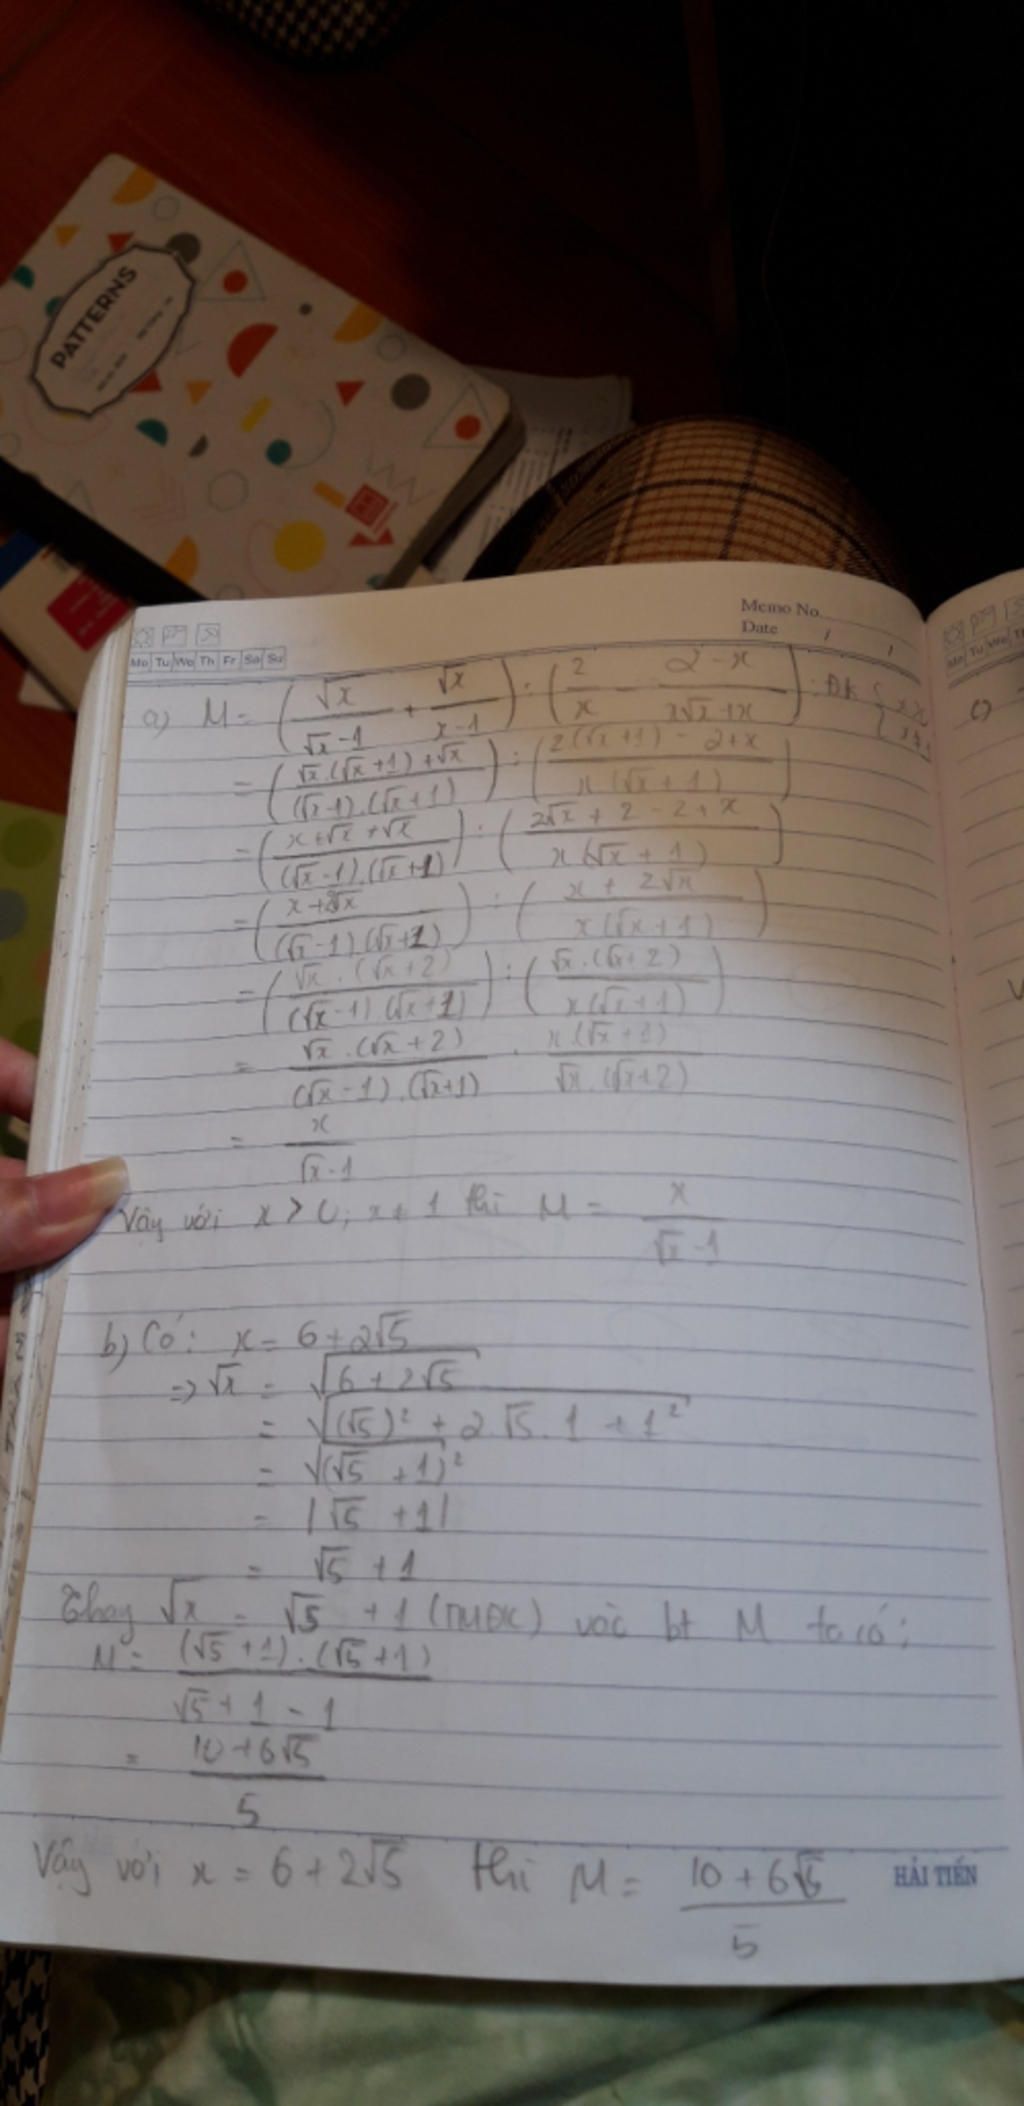 PATTERNS
Memo No.
Date / /
Mo Tu We Th Fr Sa Su
a) M = (√x/(√x-1) + √x/(x-1)) : (2/x - (2-x)/(x√x+x)) : ĐK
= ((√x.(√x+1)+√x)/((√x-1).(√x+1))) : ((2(√x+1) - 2+x)/(x(√x+1)))
= ((x+√x+√x)/((√x-1).(√x+1))) : ((2√x + 2 - 2 + x)/(x(√x+1)))
= ((x+2√x)/((√x-1)(√x+1))) : ((x + 2√x)/(x(√x+1)))
= ((√x.(√x+2))/((√x-1).(√x+1))) : ((√x.(√x+2))/(x(√x+1)))
= (√x.(√x+2))/((√x-1).(√x+1)) . (x.(√x+1))/(√x.(√x+2))
= x/(√x-1)
Vậy với x > 0; x ≠ 1 thì M = x/(√x-1)
b) Có: x = 6+2√5
=> √x = √(6+2√5)
= √((√5)² + 2.√5.1 + 1²)
= √((√5+1)²)
= |√5+1|
= √5+1
Thay √x = √5+1 (TMĐK) vào bt M ta có:
M = ((√5+1).(√5+1))/(√5+1-1)
= (10+6√5)/5
Vậy với x = 6+2√5 thì M = (10+6√5)/5
HẢI TIẾN
c)